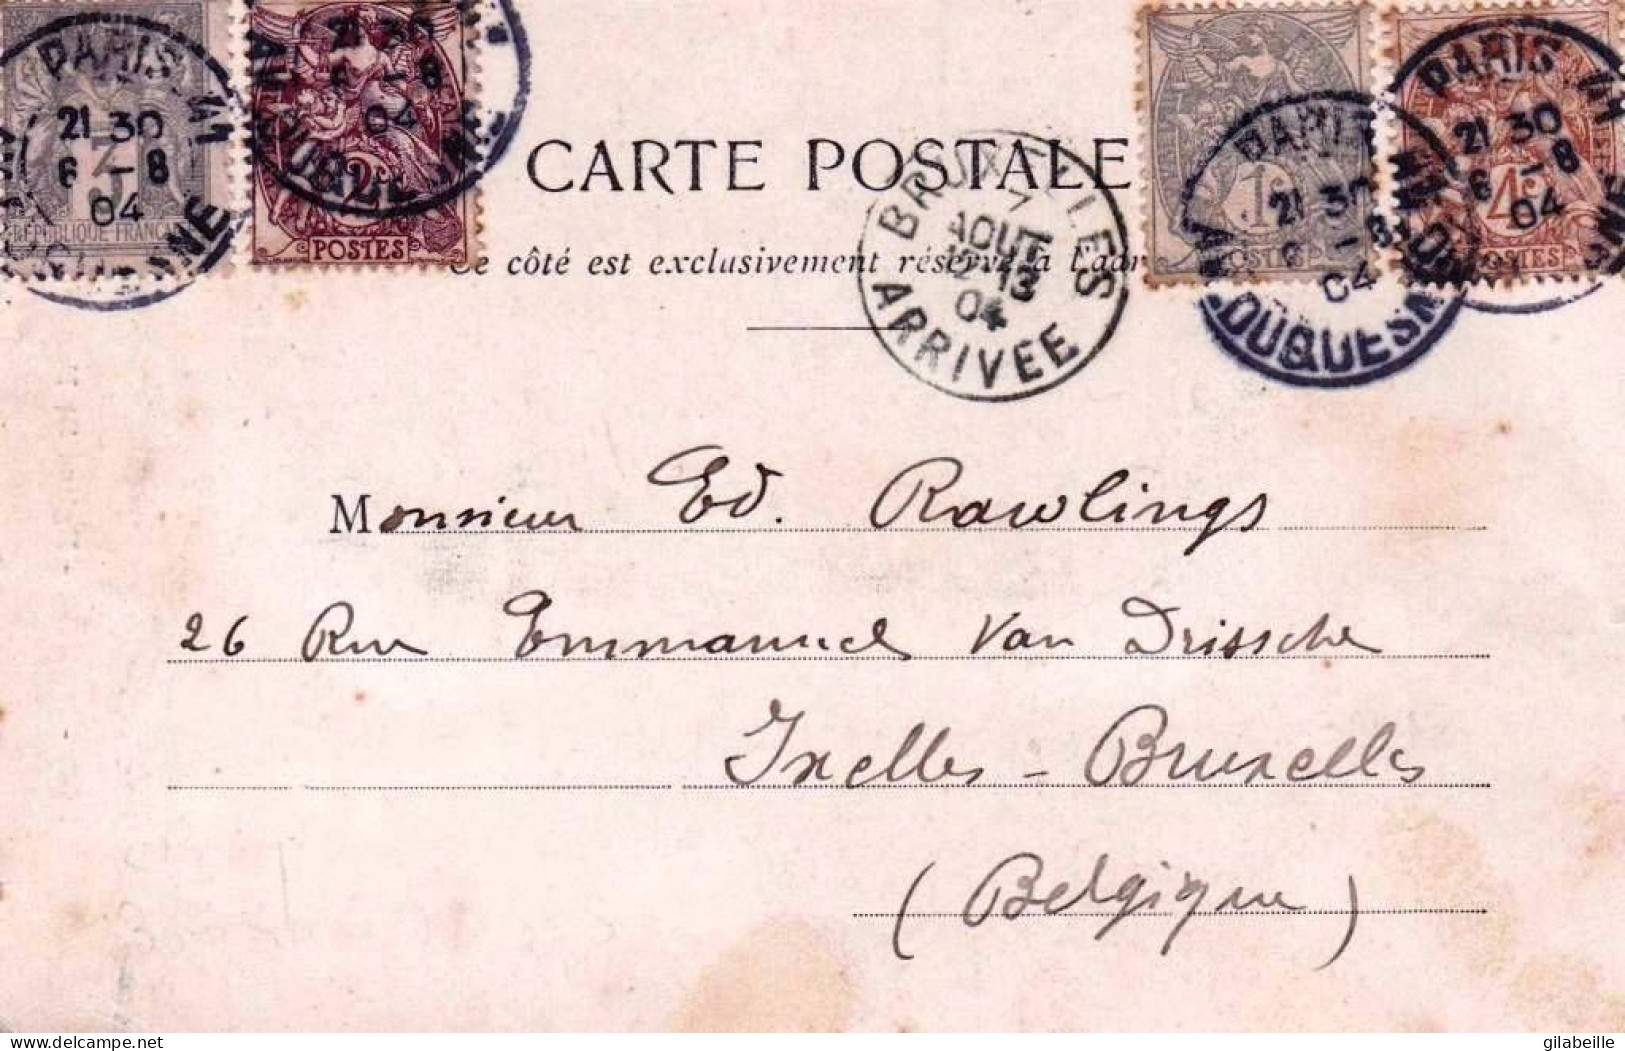 PARIS VII
21 30
6 - 8
04
DUQUESNE
3
RÉPUBLIQUE FRANC
21 30
6 - 8
04
DUQUESNE
2c
POSTES
PARIS VII
21 30
6 - 8
04
AV. DUQUESNE
1c
POSTES
PARIS VII
21 30
6 - 8
04
4c
POSTES
CARTE POSTALE
Ce côté est exclusivement réservé à l'adr
BRUXELLES
7
AOUT
13
04
ARRIVEE
Monsieur Ed. Rawlings
26 Rue Emmanuel Van Drissche
Ixelles - Bruxelles
(Belgique)
gilabeille